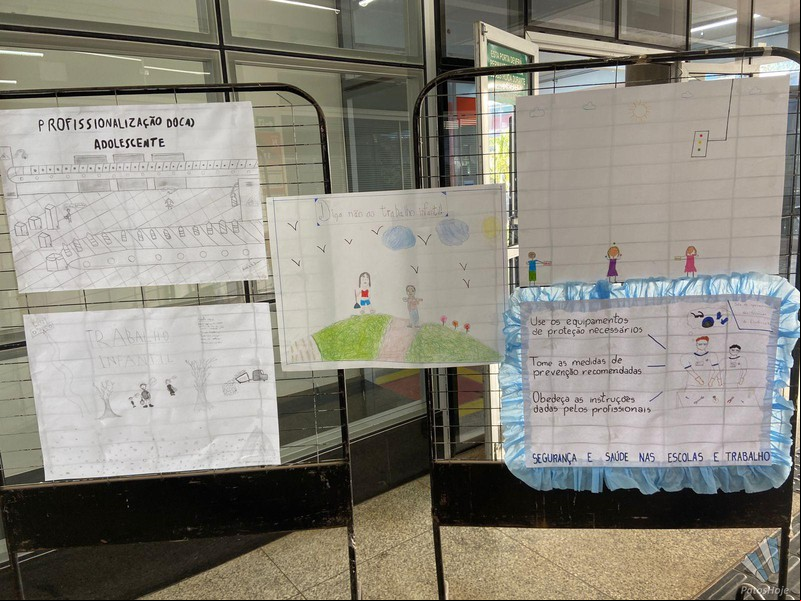 PROFISSIONALIZAÇÃO DO(A)
ADOLESCENTE
TRABALHO
INFANTIL
Diga não ao trabalho infantil
ESTA PORTA DEVERÁ
Use os equipamentos
de proteção necessários
Tome as medidas de
prevenção recomendadas
Obedeça as instruções
dadas pelos profissionais
SEGURANÇA E SAÚDE NAS ESCOLAS E TRABALHO
PatosHoje